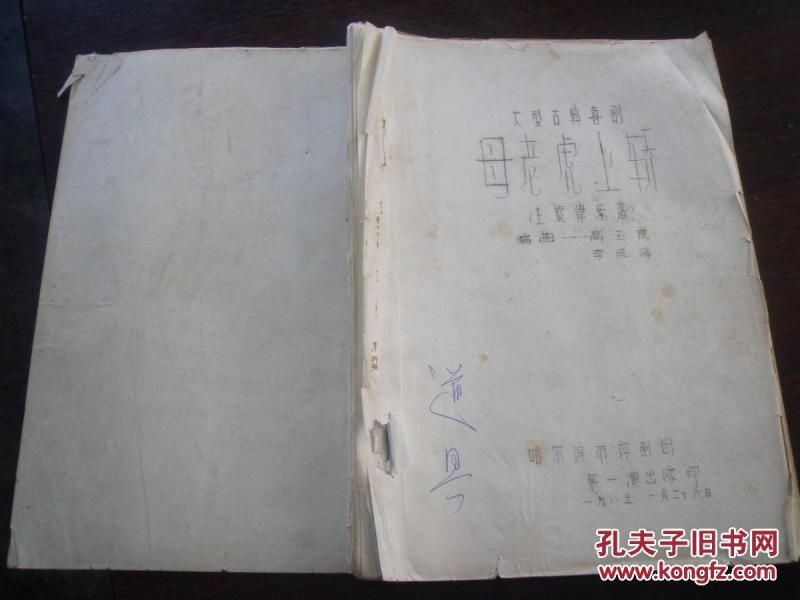 大型古典喜剧
母老虎上轿
(主旋律乐谱)
编曲——高玉良
李成泽
道具
哈尔滨市评剧团
第一演出队印
一九八五 一月二十六日
孔夫子旧书网
www.kongfz.com